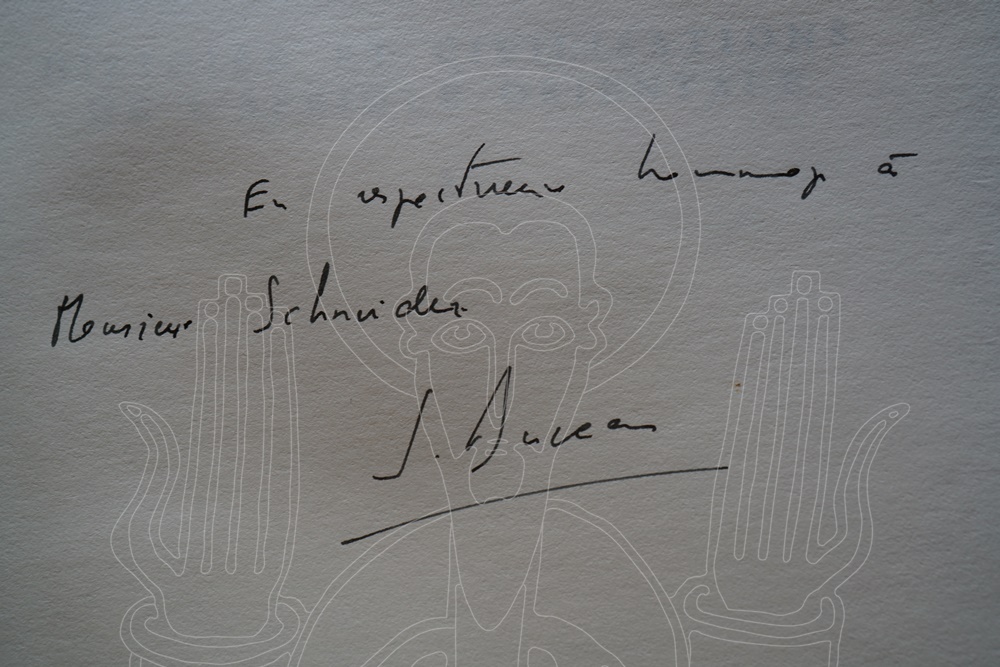 En respectueux hommage à
Monsieur Schneider
J.